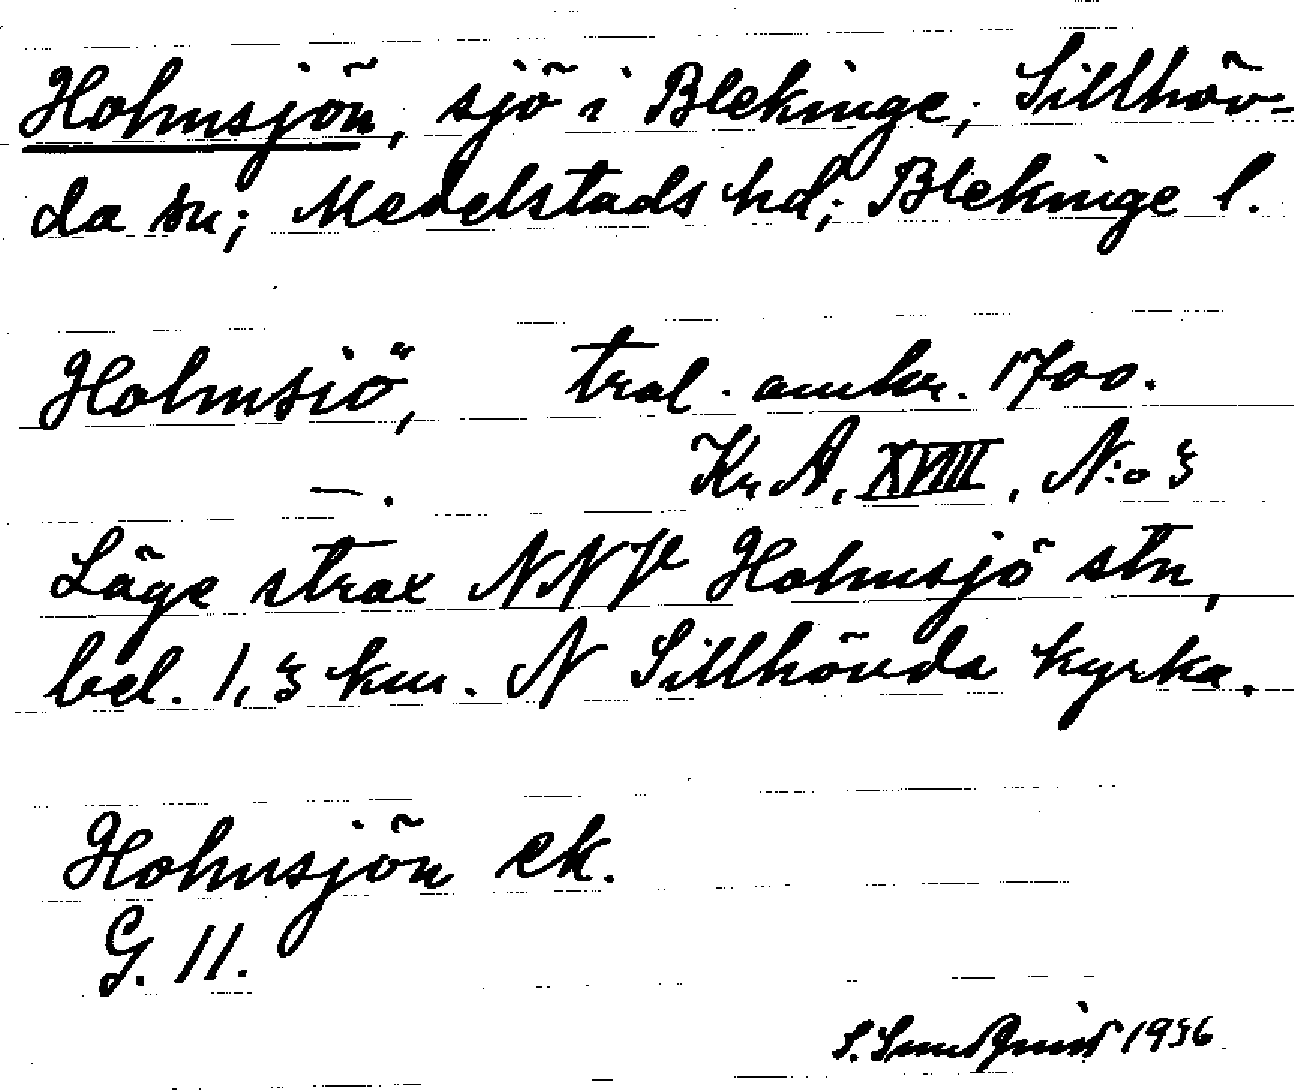 Holmsjön, sjö i Blekinge; Sillhöv-
da sn; Medelstads hd; Blekinge l.
Holmsiö, tral. omkr. 1700.
—. Kr. A. XVIII, N:o 3
Läge strax NNV Holmsjö stn,
bel. 1,3 km. N Sillhövda kyrka.
Holmsjön ek.
G. 11.
S. Sundquist 1936